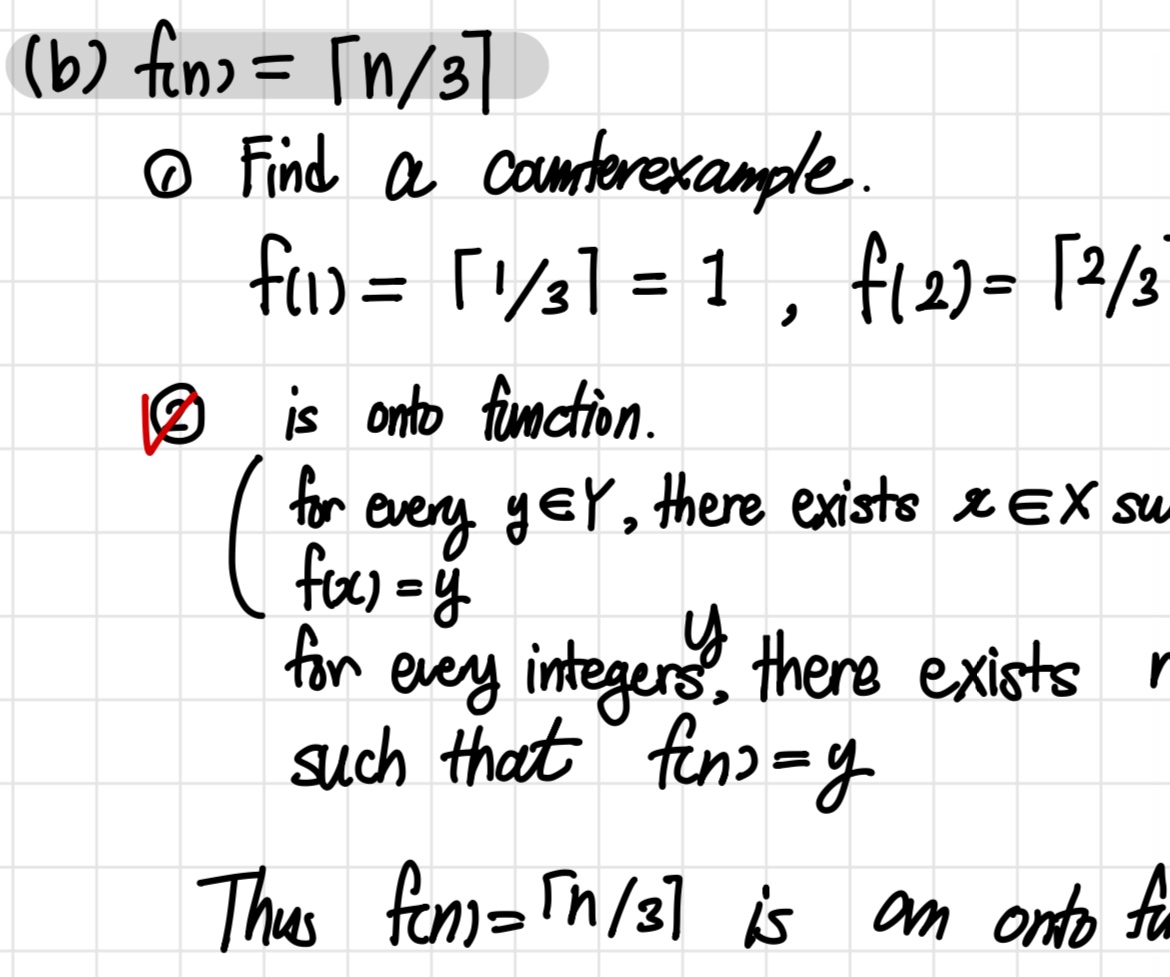 (b) f(n) = ⌈n/3⌉
① Find a counterexample.
f(1) = ⌈1/3⌉ = 1 , f(2) = ⌈2/3⌉
② is onto function.
( for every y∈Y, there exists x∈X su
f(x) = y
for every integers y, there exists
such that f(n) = y
Thus f(n) = ⌈n/3⌉ is an onto fu